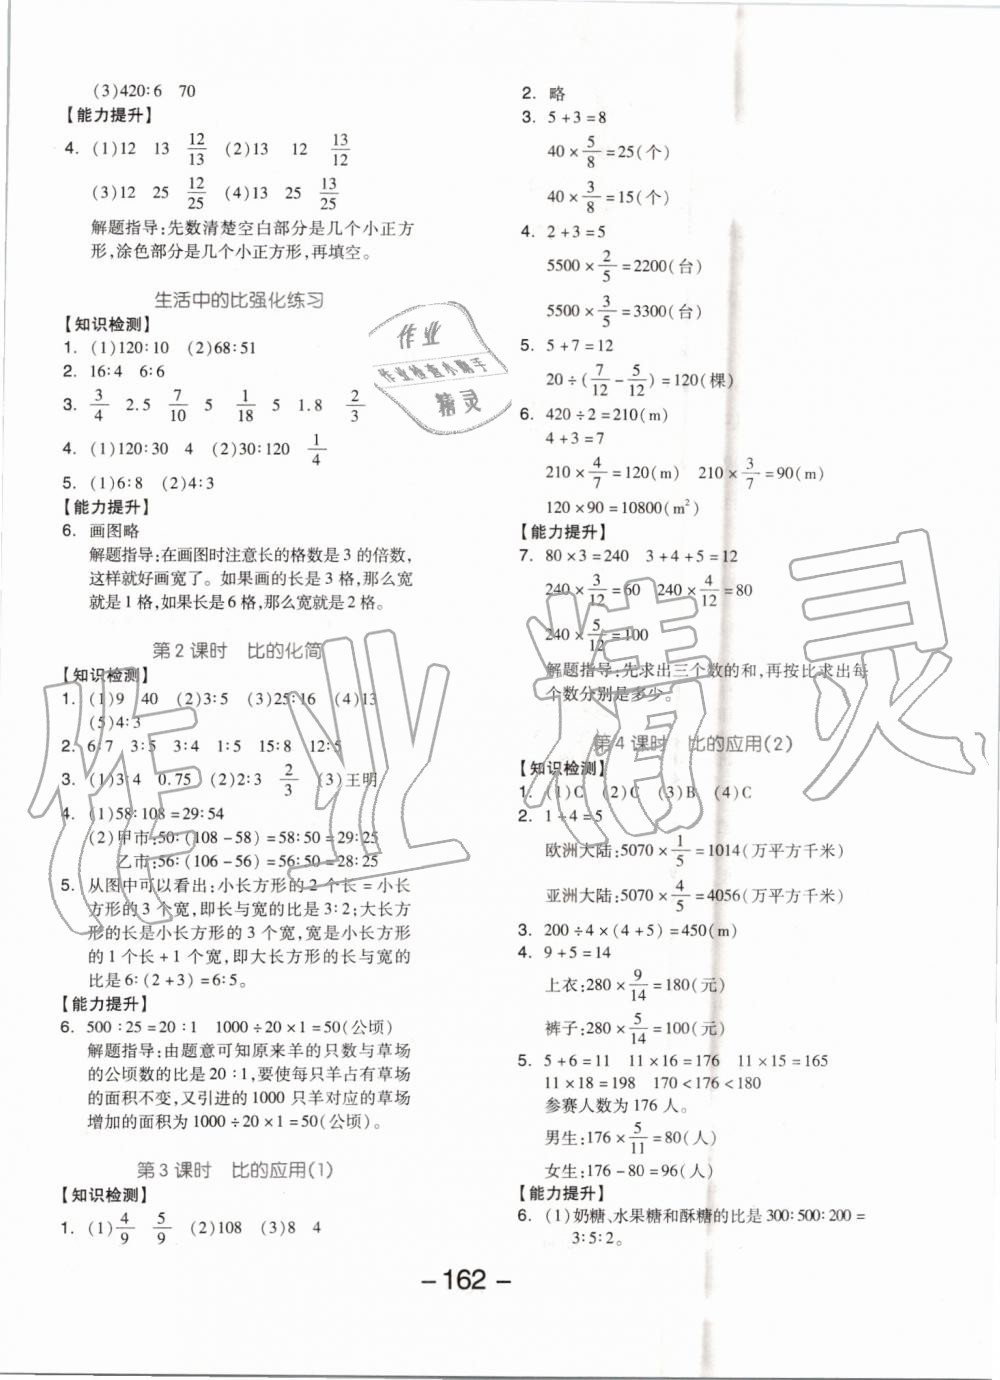 (3)420∶6　70
【能力提升】
4. (1)12　13　12/13　(2)13　12　13/12
(3)12　25　12/25　(4)13　25　13/25
解题指导:先数清楚空白部分是几个小正方
形,涂色部分是几个小正方形,再填空。
生活中的比强化练习
【知识检测】
1. (1)120∶10　(2)68∶51
2. 16∶4　6∶6
3. 3/4　2.5　7/10　5　1/18　5　1.8　2/3
4. (1)120∶30　4　(2)30∶120　1/4
5. (1)6∶8　(2)4∶3
【能力提升】
6. 画图略
解题指导:在画图时注意长的格数是 3 的倍数,
这样就好画宽了。如果画的长是 3 格,那么宽
就是 1 格,如果长是 6 格,那么宽就是 2 格。
第 2 课时　比的化简
【知识检测】
1. (1)9　40　(2)3∶5　(3)25∶16　(4)13
(5)4∶3
2. 6∶7　3∶5　3∶4　1∶5　15∶8　12∶5
3. (1)3∶4　0.75　(2)2∶3　2/3　(3)王明
4. (1)58∶108=29∶54
(2)甲市:50∶(108-58)=58∶50=29∶25
乙市:56∶(106-56)=56∶50=28∶25
5. 从图中可以看出:小长方形的 2 个长=小长
方形的 3 个宽,即长与宽的比是 3∶2;大长方
形的长是小长方形的 3 个宽,宽是小长方形
的 1 个长+1 个宽,即大长方形的长与宽的
比是 6∶(2+3)=6∶5。
【能力提升】
6. 500∶25=20∶1　1000÷20×1=50(公顷)
解题指导:由题意可知原来羊的只数与草场
的公顷数的比是 20∶1,要使每只羊占有草场
的面积不变,又引进的 1000 只羊对应的草场
增加的面积为 1000÷20×1=50(公顷)。
第 3 课时　比的应用(1)
【知识检测】
1. (1)4/9　5/9　(2)108　(3)8　4
2. 略
3. 5+3=8
40×5/8=25(个)
40×3/8=15(个)
4. 2+3=5
5500×2/5=2200(台)
5500×3/5=3300(台)
5. 5+7=12
20÷(7/12-5/12)=120(棵)
6. 420÷2=210(m)
4+3=7
210×4/7=120(m)　210×3/7=90(m)
120×90=10800(m²)
【能力提升】
7. 80×3=240　3+4+5=12
240×3/12=60　240×4/12=80
240×5/12=100
解题指导:先求出三个数的和,再按比求出每
个数分别是多少。
第 4 课时　比的应用(2)
【知识检测】
1. (1)C　(2)C　(3)B　(4)C
2. 1+4=5
欧洲大陆:5070×1/5=1014(万平方千米)
亚洲大陆:5070×4/5=4056(万平方千米)
3. 200÷4×(4+5)=450(m)
4. 9+5=14
上衣:280×9/14=180(元)
裤子:280×5/14=100(元)
5. 5+6=11　11×16=176　11×15=165
11×18=198　170<176<180
参赛人数为 176 人。
男生:176×5/11=80(人)
女生:176-80=96(人)
【能力提升】
6. (1)奶糖、水果糖和酥糖的比是 300∶500∶200=
3∶5∶2。
-162-
作业
作业检查小助手
精灵
作业精灵